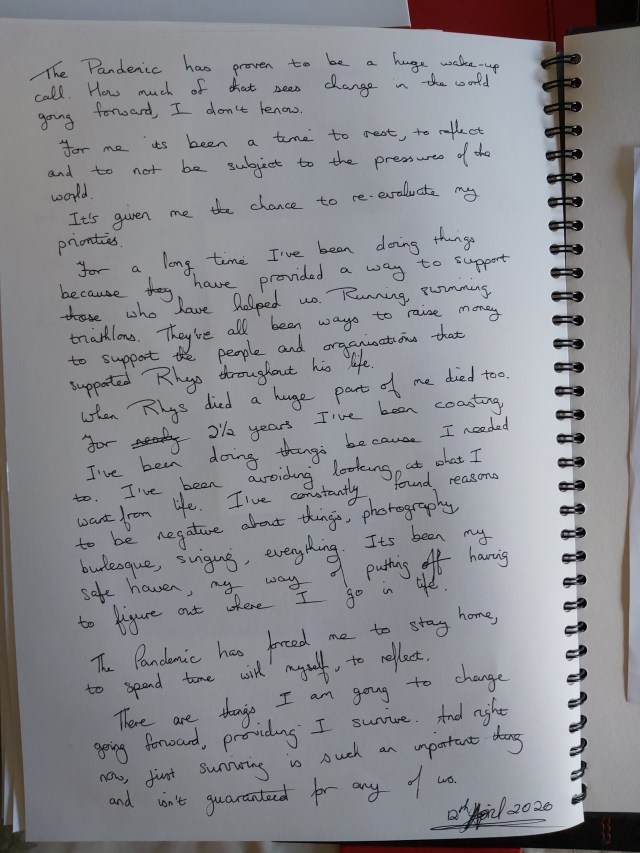 The Pandemic has proven to be a huge wake-up
call. How much of that sees change in the world
going forward, I don't know.
For me its been a time to rest, to reflect
and to not be subject to the pressures of the
world.
It's given me the chance to re-evaluate my
priorities.
For a long time I've been doing things
because they have provided a way to support
those who have helped us. Running, swimming,
triathlons. They've all been ways to raise money
to support the people and organisations that
supported Rhys throughout his life.
When Rhys died a huge part of me died too.
For nearly 2½ years I've been coasting,
I've been doing things because I needed
to. I've been avoiding looking at what I
want from life. I've constantly found reasons
to be negative about things, photography,
burlesque, singing, everything. Its been my
safe haven, my way of putting off having
to figure out where I go in life.
The Pandemic has forced me to stay home,
to spend time with myself, to reflect.
There are things I am going to change
going forward, providing I survive. And right
now, just surviving is such an important thing
and isn't guaranteed for any of us.
12th April 2020